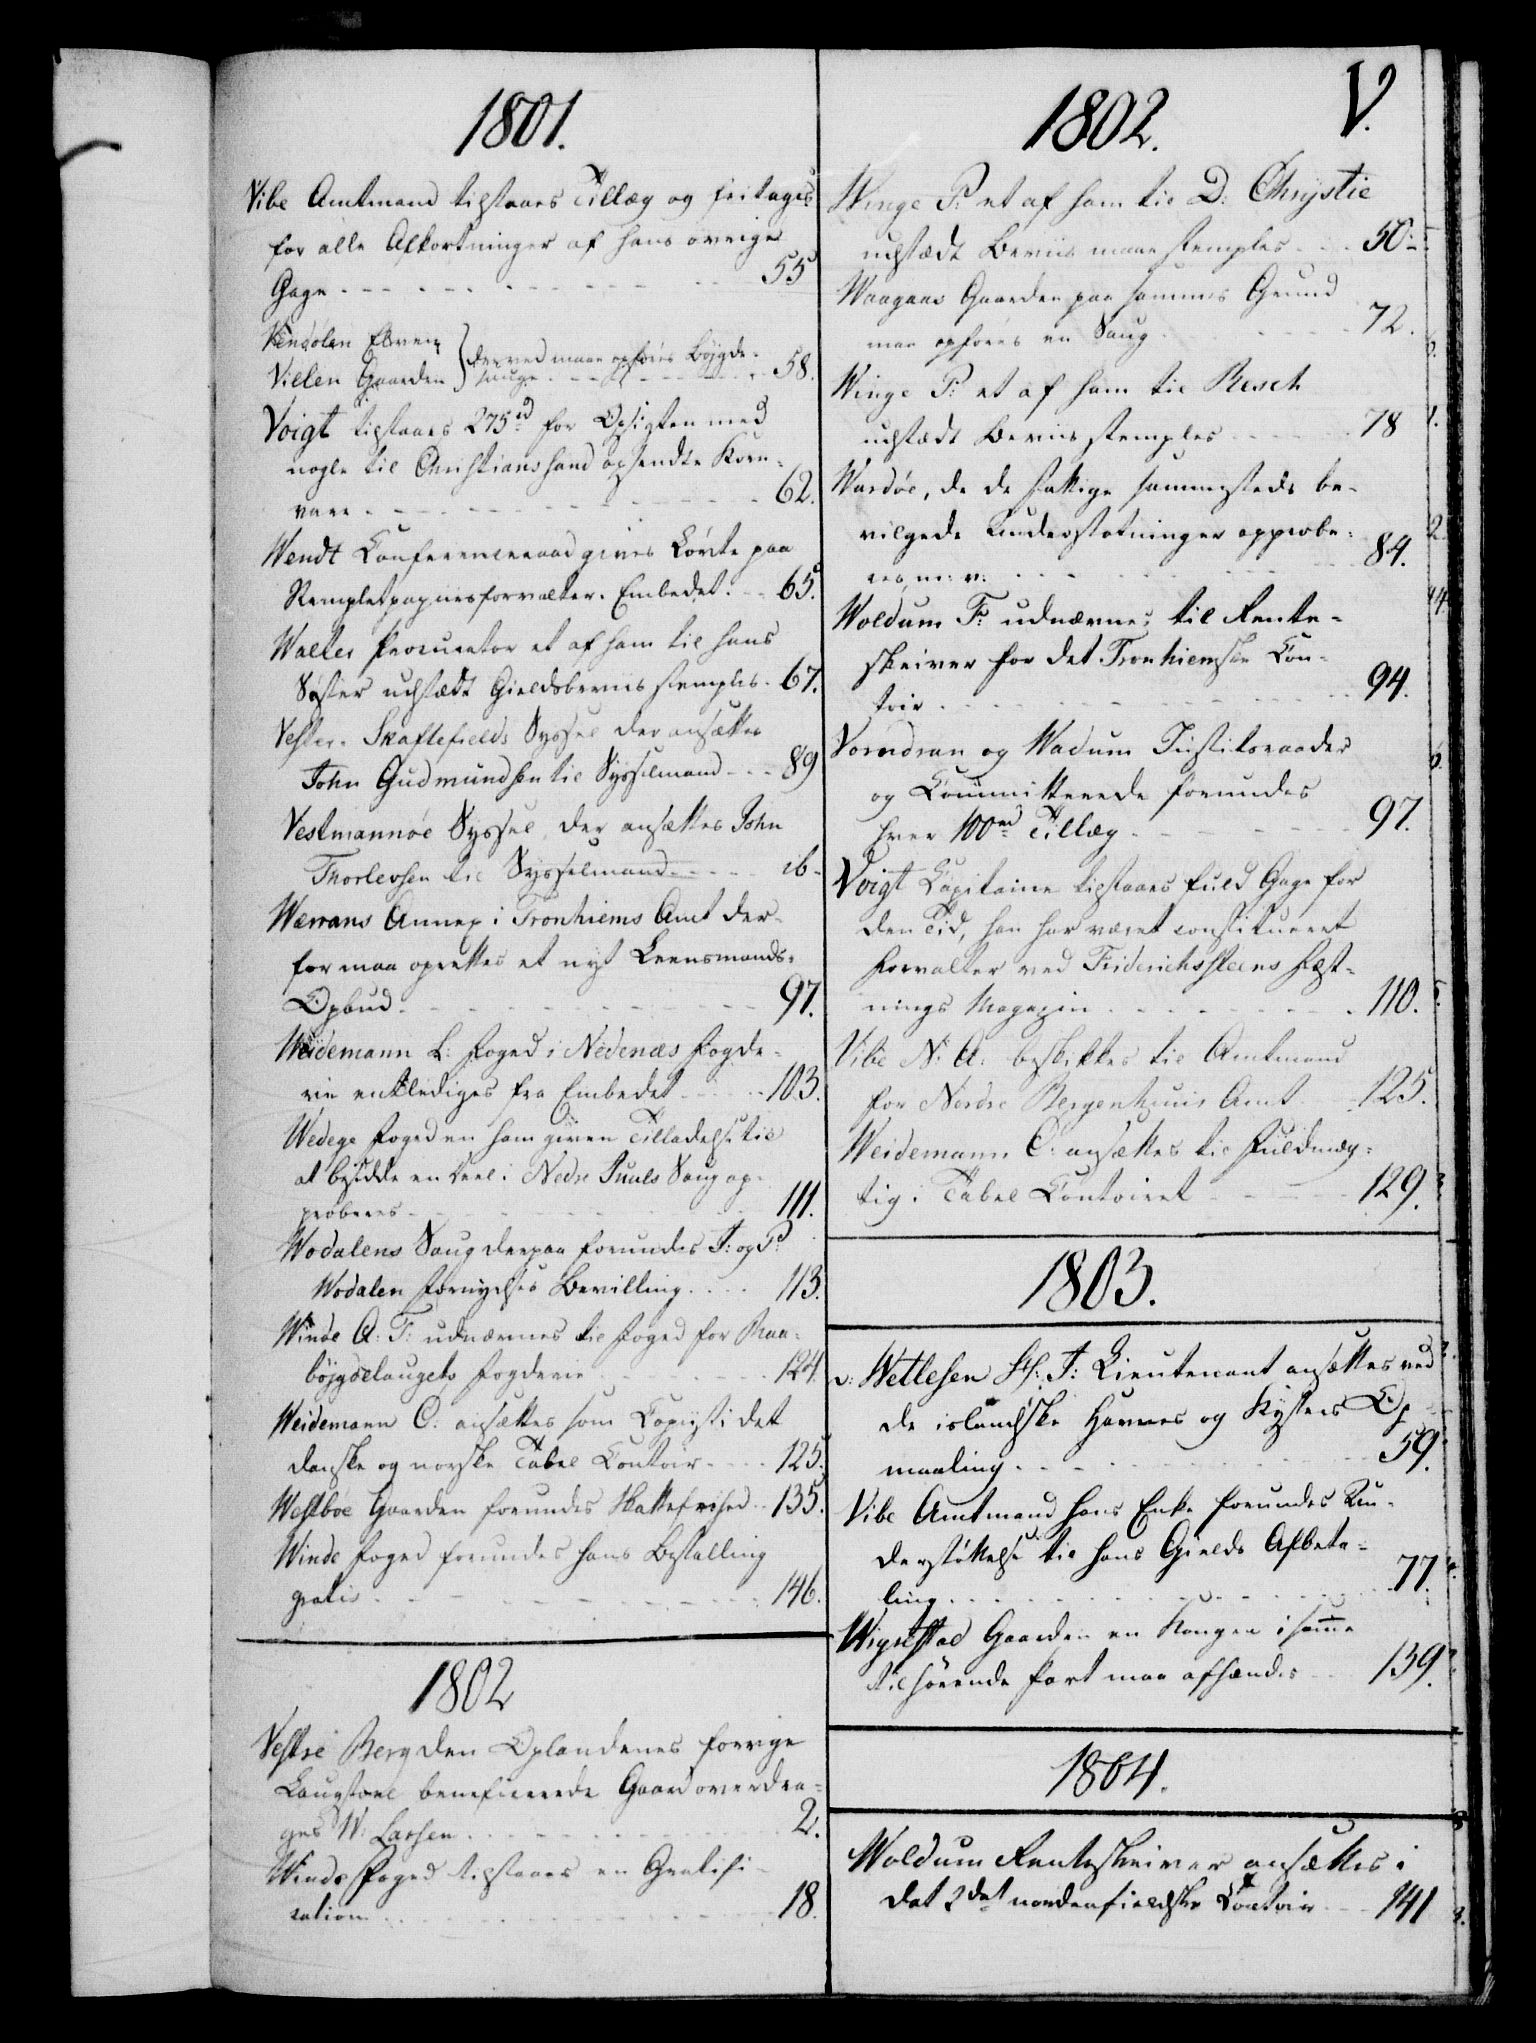 V.
1801.
Vibe Amtmand tilstaaes Tillæg og fritages
for alle Afkortninger af hans øvrige
Gage 55
Elven
Villen Gaarden } derved maae opføres Bøjgde-
Sauge 58.
Voigt tilstaaes 275 rd for Opsigten med
nogle til Christianssand opsendte Korn-
vare 62.
Wendt Conferenceraad gives Løvte paa
Stempletpapiirsforvalter-Embedet 65.
Walter Procurator et af ham til hans
Søster udstædt Gieldsbeviis stemples 67.
Vester-Skaftefields Syssel der ansættes
John Gudmundsen til Sysselmand 89
Vestmannøe Syssel, der ansættes John
Thorlevsen til Sysselmand ib-
Werrans Annex i Tronhiems Amt der-
for maa oprettes et nyt Leensmands-
Ombud 97.
Weidemann L: Foged i Nedenæs Fogde-
rie entlediges fra Embedet 103.
Wedege Foged en ham given Tilladelse til
at besidde en Deel i Nedre Juuls Saug ap-
proberes 111.
Wodalens Saug derpaa forundes J: og P:
Wodalen fornyelses Bevilling 113.
Winde A: F: udnævnes til Foged for Raa-
bøjgdelaugets Fogderie 124.
Weidemann C: ansættes som Copiist i det
danske og norske Tabel Contoir 125.
Westbøe Gaarden forundes Skattefrihed 135.
Winde Foged forundes hans Bestalling
gratis 146.
1802
Vestre Berg den Oplandenes forrige
Laugstoel beneficerede Gaard overdra-
ges W: Larsen 2.
Winde Foged tilstaaes en Gratifi-
cation 18.
1802.
Winge P: et af ham til D: Chrystie
udstædt Beviis maae stemples 50.
Waagaas Gaarden paa sammes Grund
maa opføres en Saug 72.
Winge P: et af ham til Resch
udstædt Beviis stemples 78
Wardøe, de de fattige sammesteds be-
vilgede Understøtninger approbe-
res, m: v: 84.
Woldum F: udnævnes til Rente-
skriver for det Tronhiemske Con-
toir 94.
Vorndran og Wadum Justitsraader
og Committerede forundes
hver 100 rd Tillæg 97.
Voigt Capitaine tilstaaes fuld Gage for
den Tid, han har været constitueret
Forvalter ved Friderichssteens Fæst-
nings Magazin 110.
Vibe N: A: beskikkes til Amtmand
for Nordre Bergenhuus Amt 125.
Weidemann C: ansættes til Fuldmæg-
tig i Tabel Contoiret 129.
1803.
v: Wetlesen H: J: Lieutenant ansættes ved
de islandske Havnes og Kysters Op-
maaling 59.
Vibe Amtmand hans Enke forundes Un-
derstøttelse til hans Gields Afbeta-
ling 77.
Wigrestad Gaarden en Kongen i samme
tilhørende Part maa afhændes 139.
1804.
Woldum Renteskriver ansættes i
det 2det nordenfieldske Contoir 141